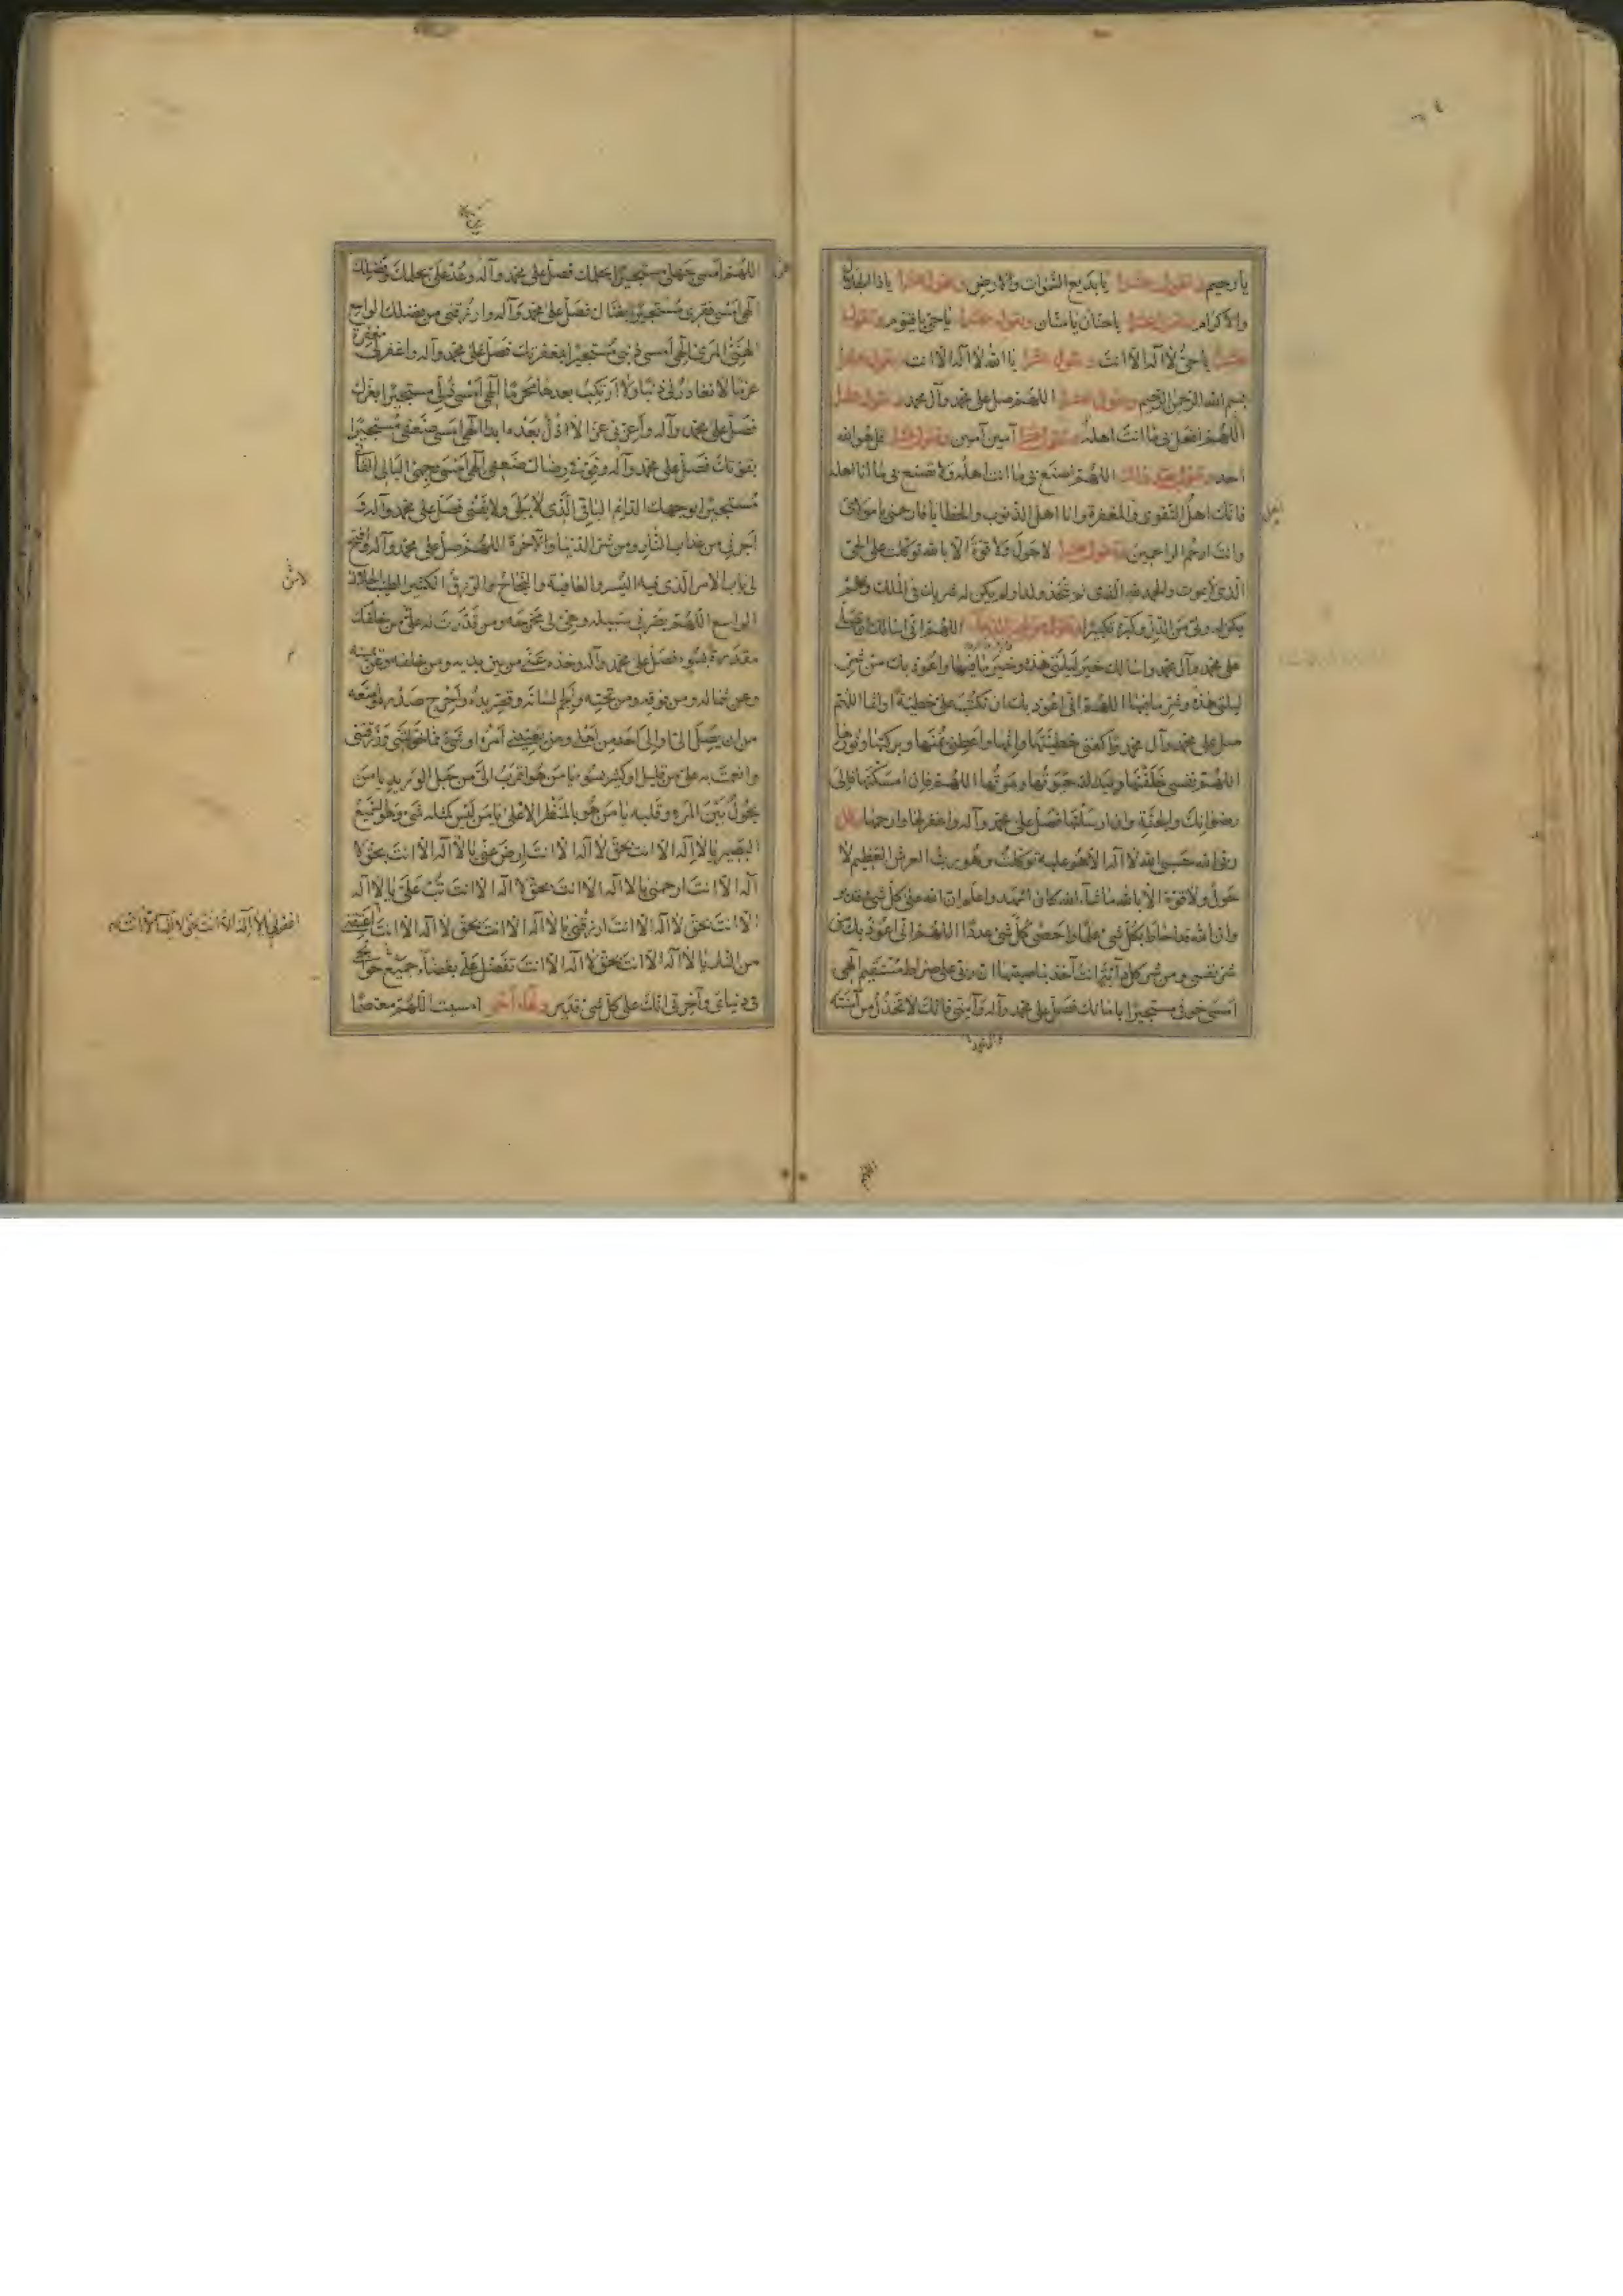 يا رحيم وتقول عشرا يا بديع السموات والارض وتقول عشرا يا ذا الجلال
والاكرام وتقول عشرا يا حنان يا منان وتقول عشرا يا حي يا قيوم وتقول
عشرا يا حي لا اله الا انت وتقول عشرا يا الله لا اله الا انت وتقول عشرا
بسم الله الرحمن الرحيم وتقول عشرا اللهم صل على محمد وآل محمد وتقول عشرا
اللهم افعل بي ما انت اهله وتقول عشرا آمين آمين وتقول عشرا قل هو الله
احد وتقول بعد ذلك اللهم اصنع بي ما انت اهله ولا تصنع بي ما انا اهله
فانك اهل التقوى والمغفرة وانا اهل الذنوب والخطايا فارحمني يا مولاي
وانت ارحم الراحمين وتقول عشرا لا حول ولا قوة الا بالله توكلت على الحي
الذي لا يموت والحمد لله الذي لم يتخذ ولدا ولم يكن له شريك في الملك ولم
يكن له ولي من الذل وكبره تكبيرا اللهم اني اسالك ان تصلي
على محمد وآل محمد واسالك خير ليلتي هذه وخير ما فيها واعوذ بك من شر
ليلتي هذه وشر ما فيها اللهم اني اعوذ بك ان تكتب علي خطيئة او اثما اللهم
صل على محمد وآل محمد واكفني خطيئتها واثمها واعطني يمنها وبركتها ونورها
اللهم نفسي خلقتها وبيدك حيوتها وموتها اللهم فان امسكتها فالى
رضوانك والجنة وان ارسلتها فصل على محمد وآله واغفر لها وارحمها
ربي الله حسبي الله لا اله الا هو عليه توكلت وهو رب العرش العظيم لا
حول ولا قوة الا بالله ما شاء الله كان اشهد واعلم ان الله على كل شيء قدير
وان الله قد احاط بكل شيء علما واحصى كل شيء عددا اللهم اني اعوذ بك من
شر نفسي ومن شر كل دابة انت آخذ بناصيتها ان ربي على صراط مستقيم الهي
امسى خوفي مستجيرا بامانك فصل على محمد وآله وآمني فانك لا تخذل من آمنته
اللهم امسى جهلي مستجيرا بحلمك فصل على محمد وآله وعد علي بحلمك وفضلك
الهي امسى فقري مستجيرا بغناك فصل على محمد وآله وارزقني من فضلك الواسع
الهنيء المريء الهي امسى ذنبي مستجيرا بمغفرتك فصل على محمد وآله واغفر لي مغفرة
عزما لا تغادر لي ذنبا ولا ارتكب بعدها محرما الهي امسى ذلي مستجيرا بعزك
فصل على محمد وآله واعزني عزا لا اذل بعده ابدا الهي امسى ضعفي مستجيرا
بقوتك فصل على محمد وآله وقو في رضاك ضعفي الهي امسى وجهي البالي الفاني
مستجيرا بوجهك الدائم الباقي الذي لا يبلى ولا يفنى فصل على محمد وآله و
اجرني من عذاب النار ومن شر الدنيا والآخرة اللهم صل على محمد وآله وافتح
لي باب الامر الذي فيه اليسر والعافية والنجاح والرزق الكثير الطيب الحلال
الواسع اللهم بصرني سبيله وهيئ لي مخرجه ومن قدرت له علي من خلقك
مقدرة بسوء فصل على محمد وآله وخذه عني من بين يديه ومن خلفه وعن يمينه
وعن شماله ومن فوقه ومن تحته والجم لسانه وقصر يده واحرج صدره وامنعه
من ان يصل الي او الى احد من اهلي ومن يعنيني امره او شيء مما خولتني ورزقتني
وانعمت به علي من قليل او كثير بسوء يا من هو اقرب الي من حبل الوريد يا من
يحول بين المرء وقلبه يا من هو بالمنظر الاعلى يا من ليس كمثله شيء وهو السميع
البصير يا لا اله الا انت بحق لا اله الا انت ارض عني يا لا اله الا انت بحق لا
اله الا انت ارحمني يا لا اله الا انت بحق لا اله الا انت تب علي يا لا اله
الا انت بحق لا اله الا انت ارزقني يا لا اله الا انت بحق لا اله الا انت اعتقني
من النار يا لا اله الا انت بحق لا اله الا انت تفضل علي بقضاء جميع حوائجي
في دنياي وآخرتي انك على كل شيء قدير دعاء آخر امسيت اللهم معتصما